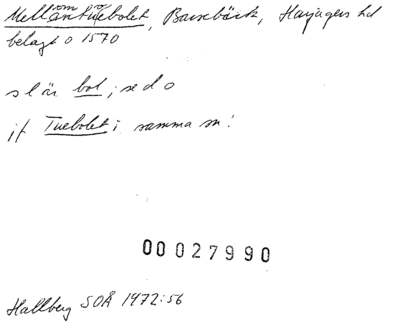 Mellomtuebolet, Barsebäck, Harjagers hd
belagt o 1570
s l är bol; se d o
jf Tuebolet i samma sn!
00027990
Hallberg SOÅ 1972:56